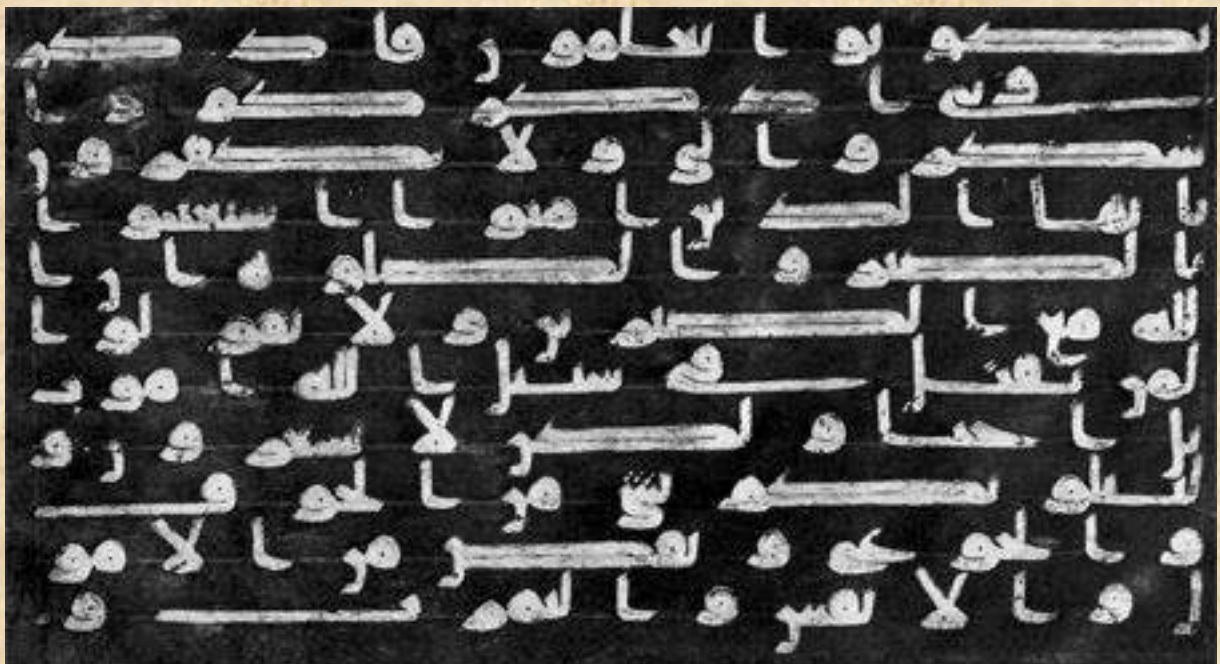 تكونوا تعلمون فاذكر
وني اذكركم وا
شكروا لي ولا تكفرون
يايها الذين امنوا استعينوا
بالصبر والصلوة ان ا
لله مع الصبرين ولا تقولوا
لمن يقتل في سبيل الله اموت
بل احيا ولكن لا تشعرون و
لنبلونكم بشي من الخوف
والجوع ونقص من الامو
ل والانفس والثمرت و